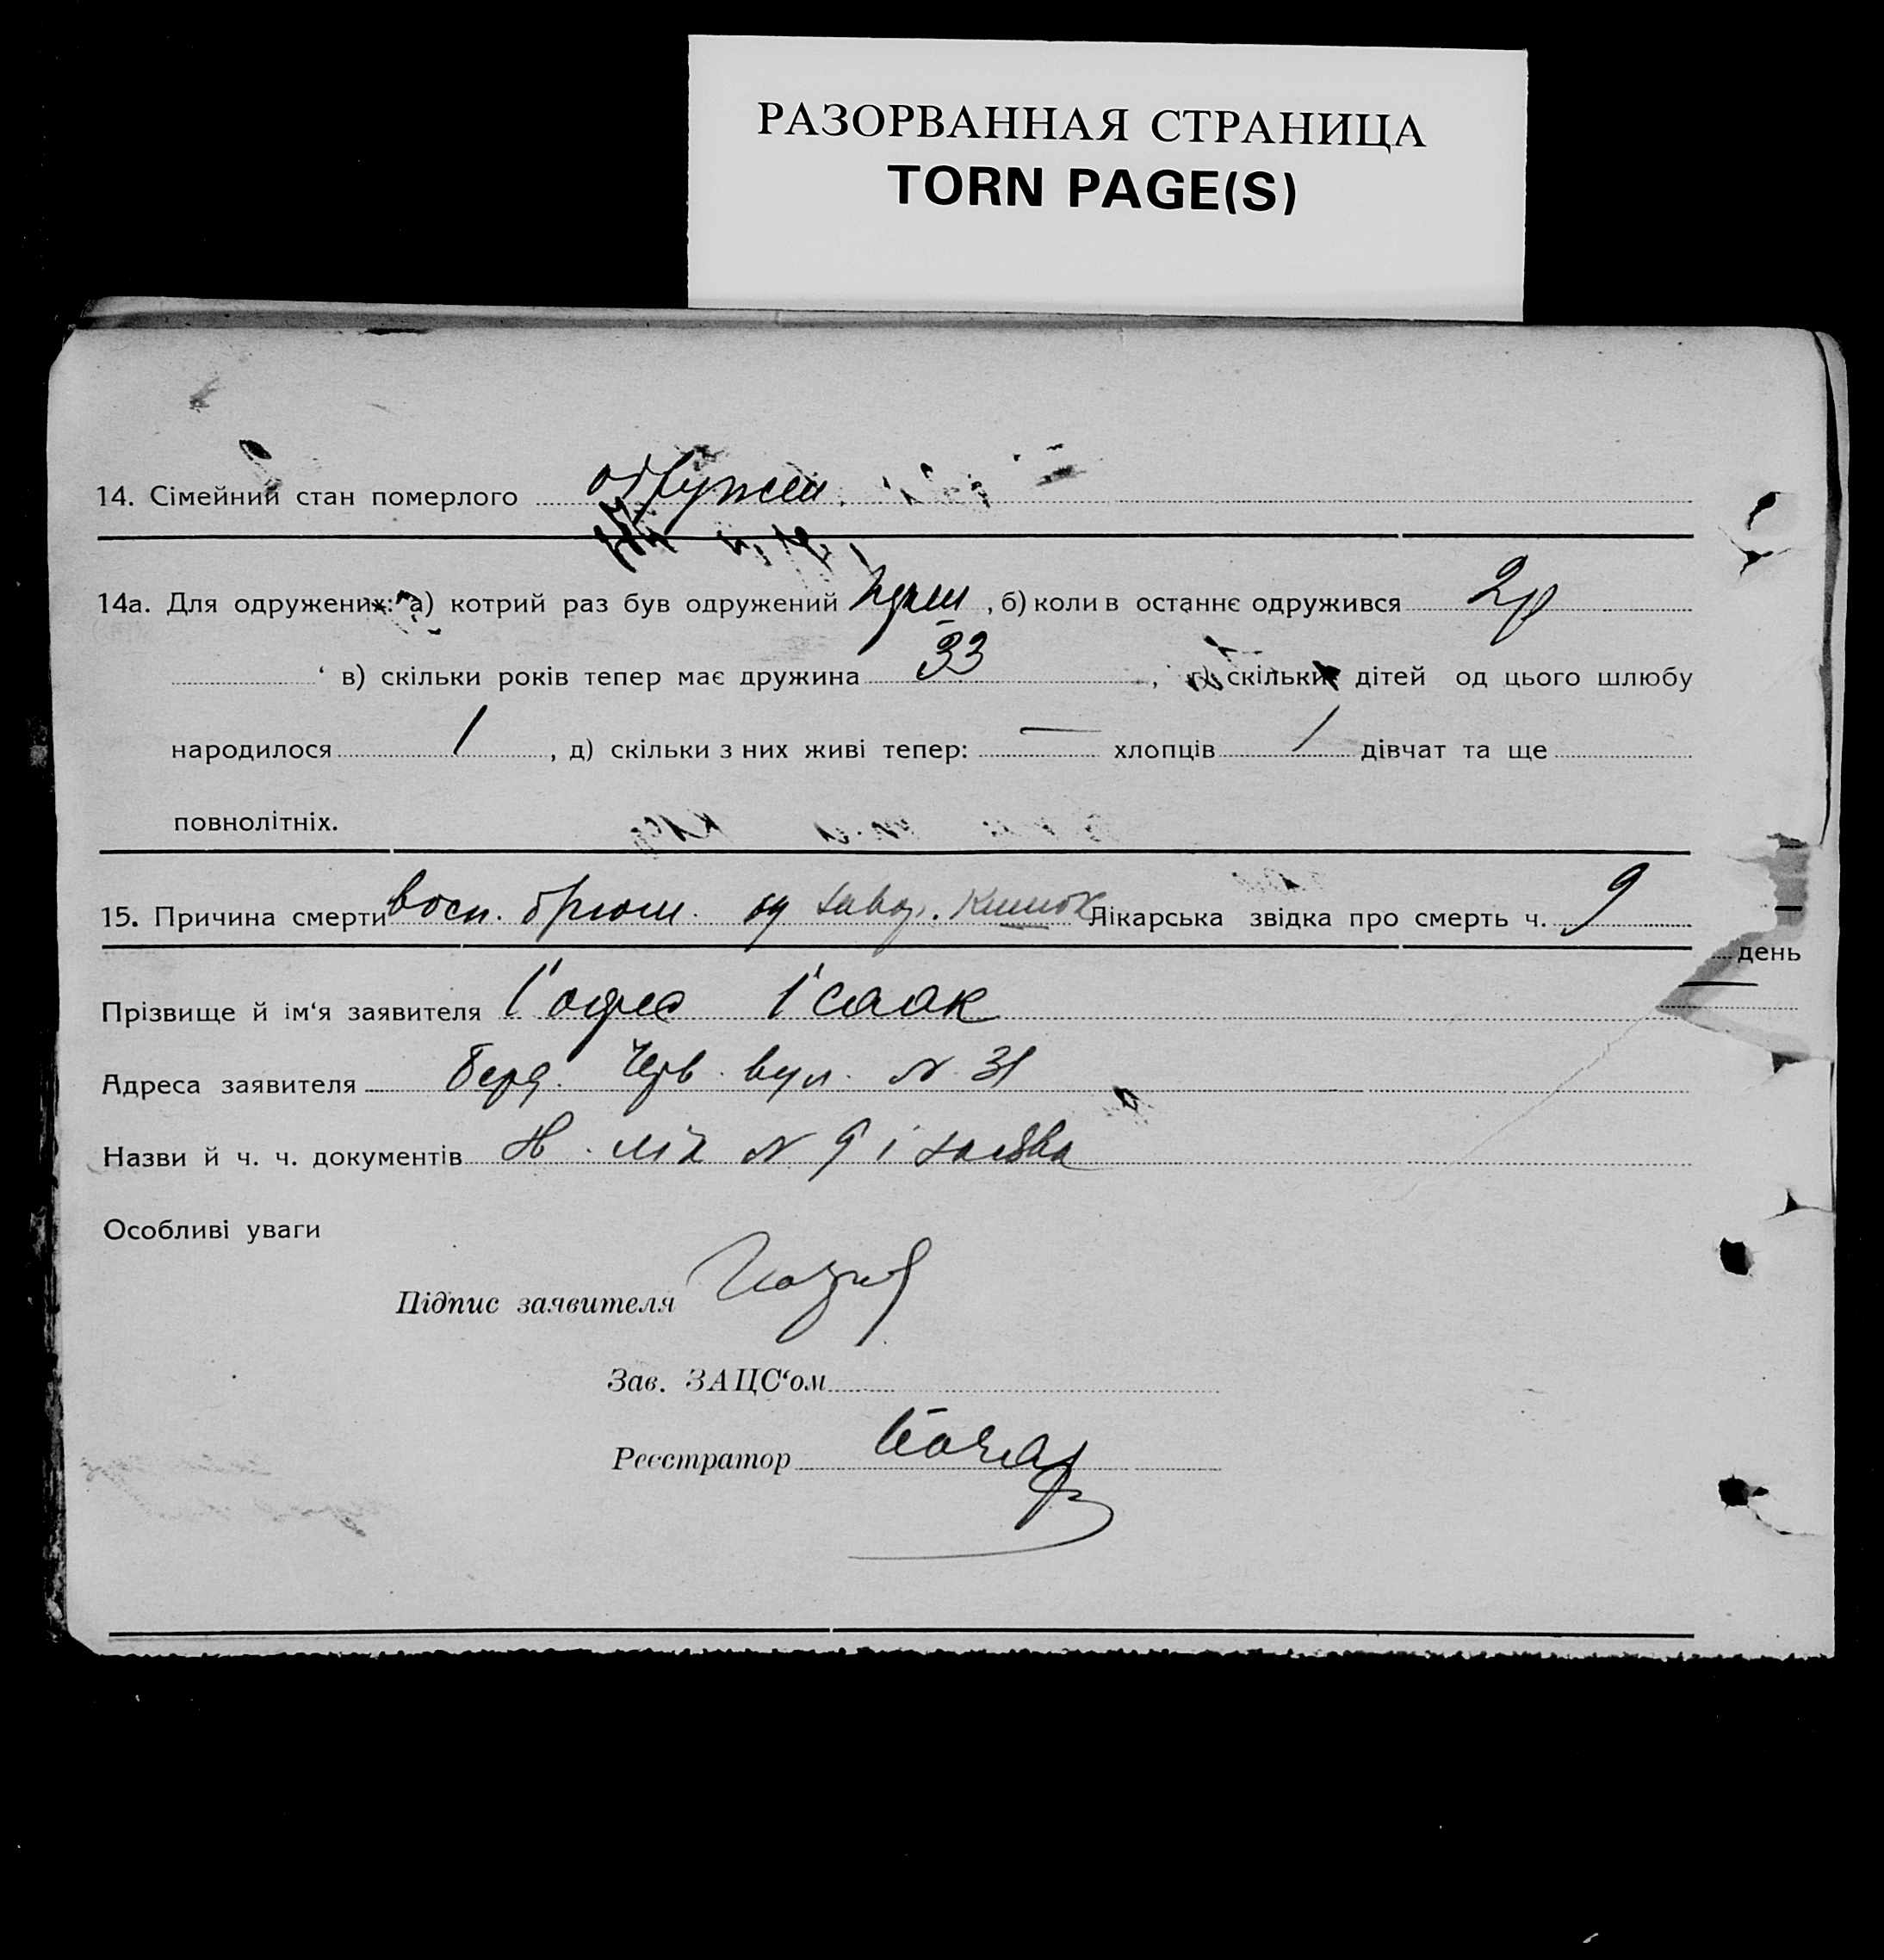 РАЗОРВАННАЯ СТРАНИЦА
TORN PAGE(S)
14. Сімейний стан померлого одружен.
14а. Для одружених: а) котрий раз був одружений , б) коли в останнє одружився 2р
в) скільки років тепер має дружина 33 , г) скільки дітей од цього шлюбу
народилося 1 , д) скільки з них живі тепер: — хлопців 1 дівчат та ще
повнолітніх.
15. Причина смерти восп. брюш. од кишок Лікарська звідка про смерть ч. 9
день
Прізвище й ім'я заявителя Ісаак
Адреса заявителя Берд. Черв. вул. N 31
Назви й ч. ч. документів N 9 і заява
Особливі уваги
Підпис заявителя
Зав. ЗАЦС'ом
Реєстратор